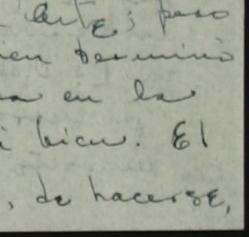 arte; pero
en termino
a en la
i bien. El
, de hacerse,